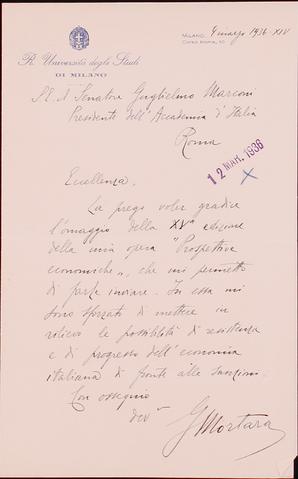 MILANO, 4 marzo 1936-XIV
CORSO ROMA, 10
R. Università degli Studi
DI MILANO
S.E. il Senatore Guglielmo Marconi
Presidente dell'Accademia d'Italia
Roma
12 MAR. 1936
Eccellenza,
La prego voler gradire
l'omaggio della XVª edizione
della mia opera "Prospettive
economiche", che mi permetto
di farle inviare. In essa mi
sono sforzato di mettere in
rilievo le possibilità di resistenza
e di progresso dell'economia
italiana di fronte alle sanzioni.
Con ossequio
dev.mo
GMortara